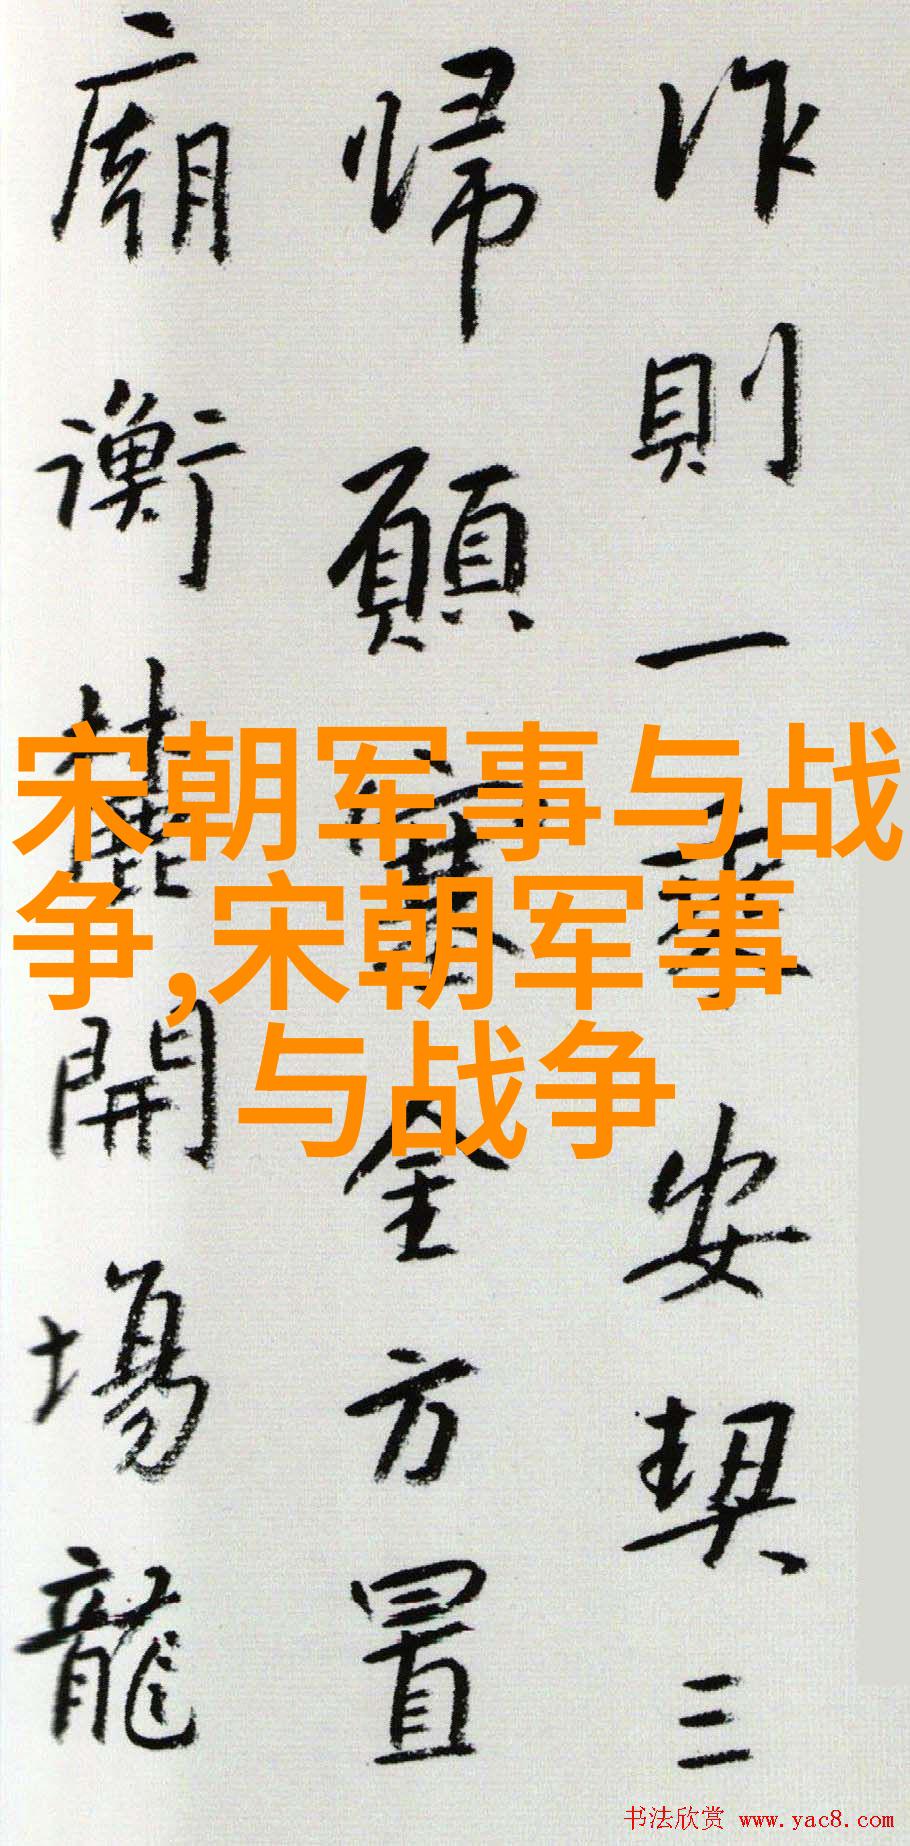 作則一安契三
帰願全方置
廟衡開場龍
宋朝军事与战
争,宋朝军事
与战争
书法欣赏 www.yac8.com